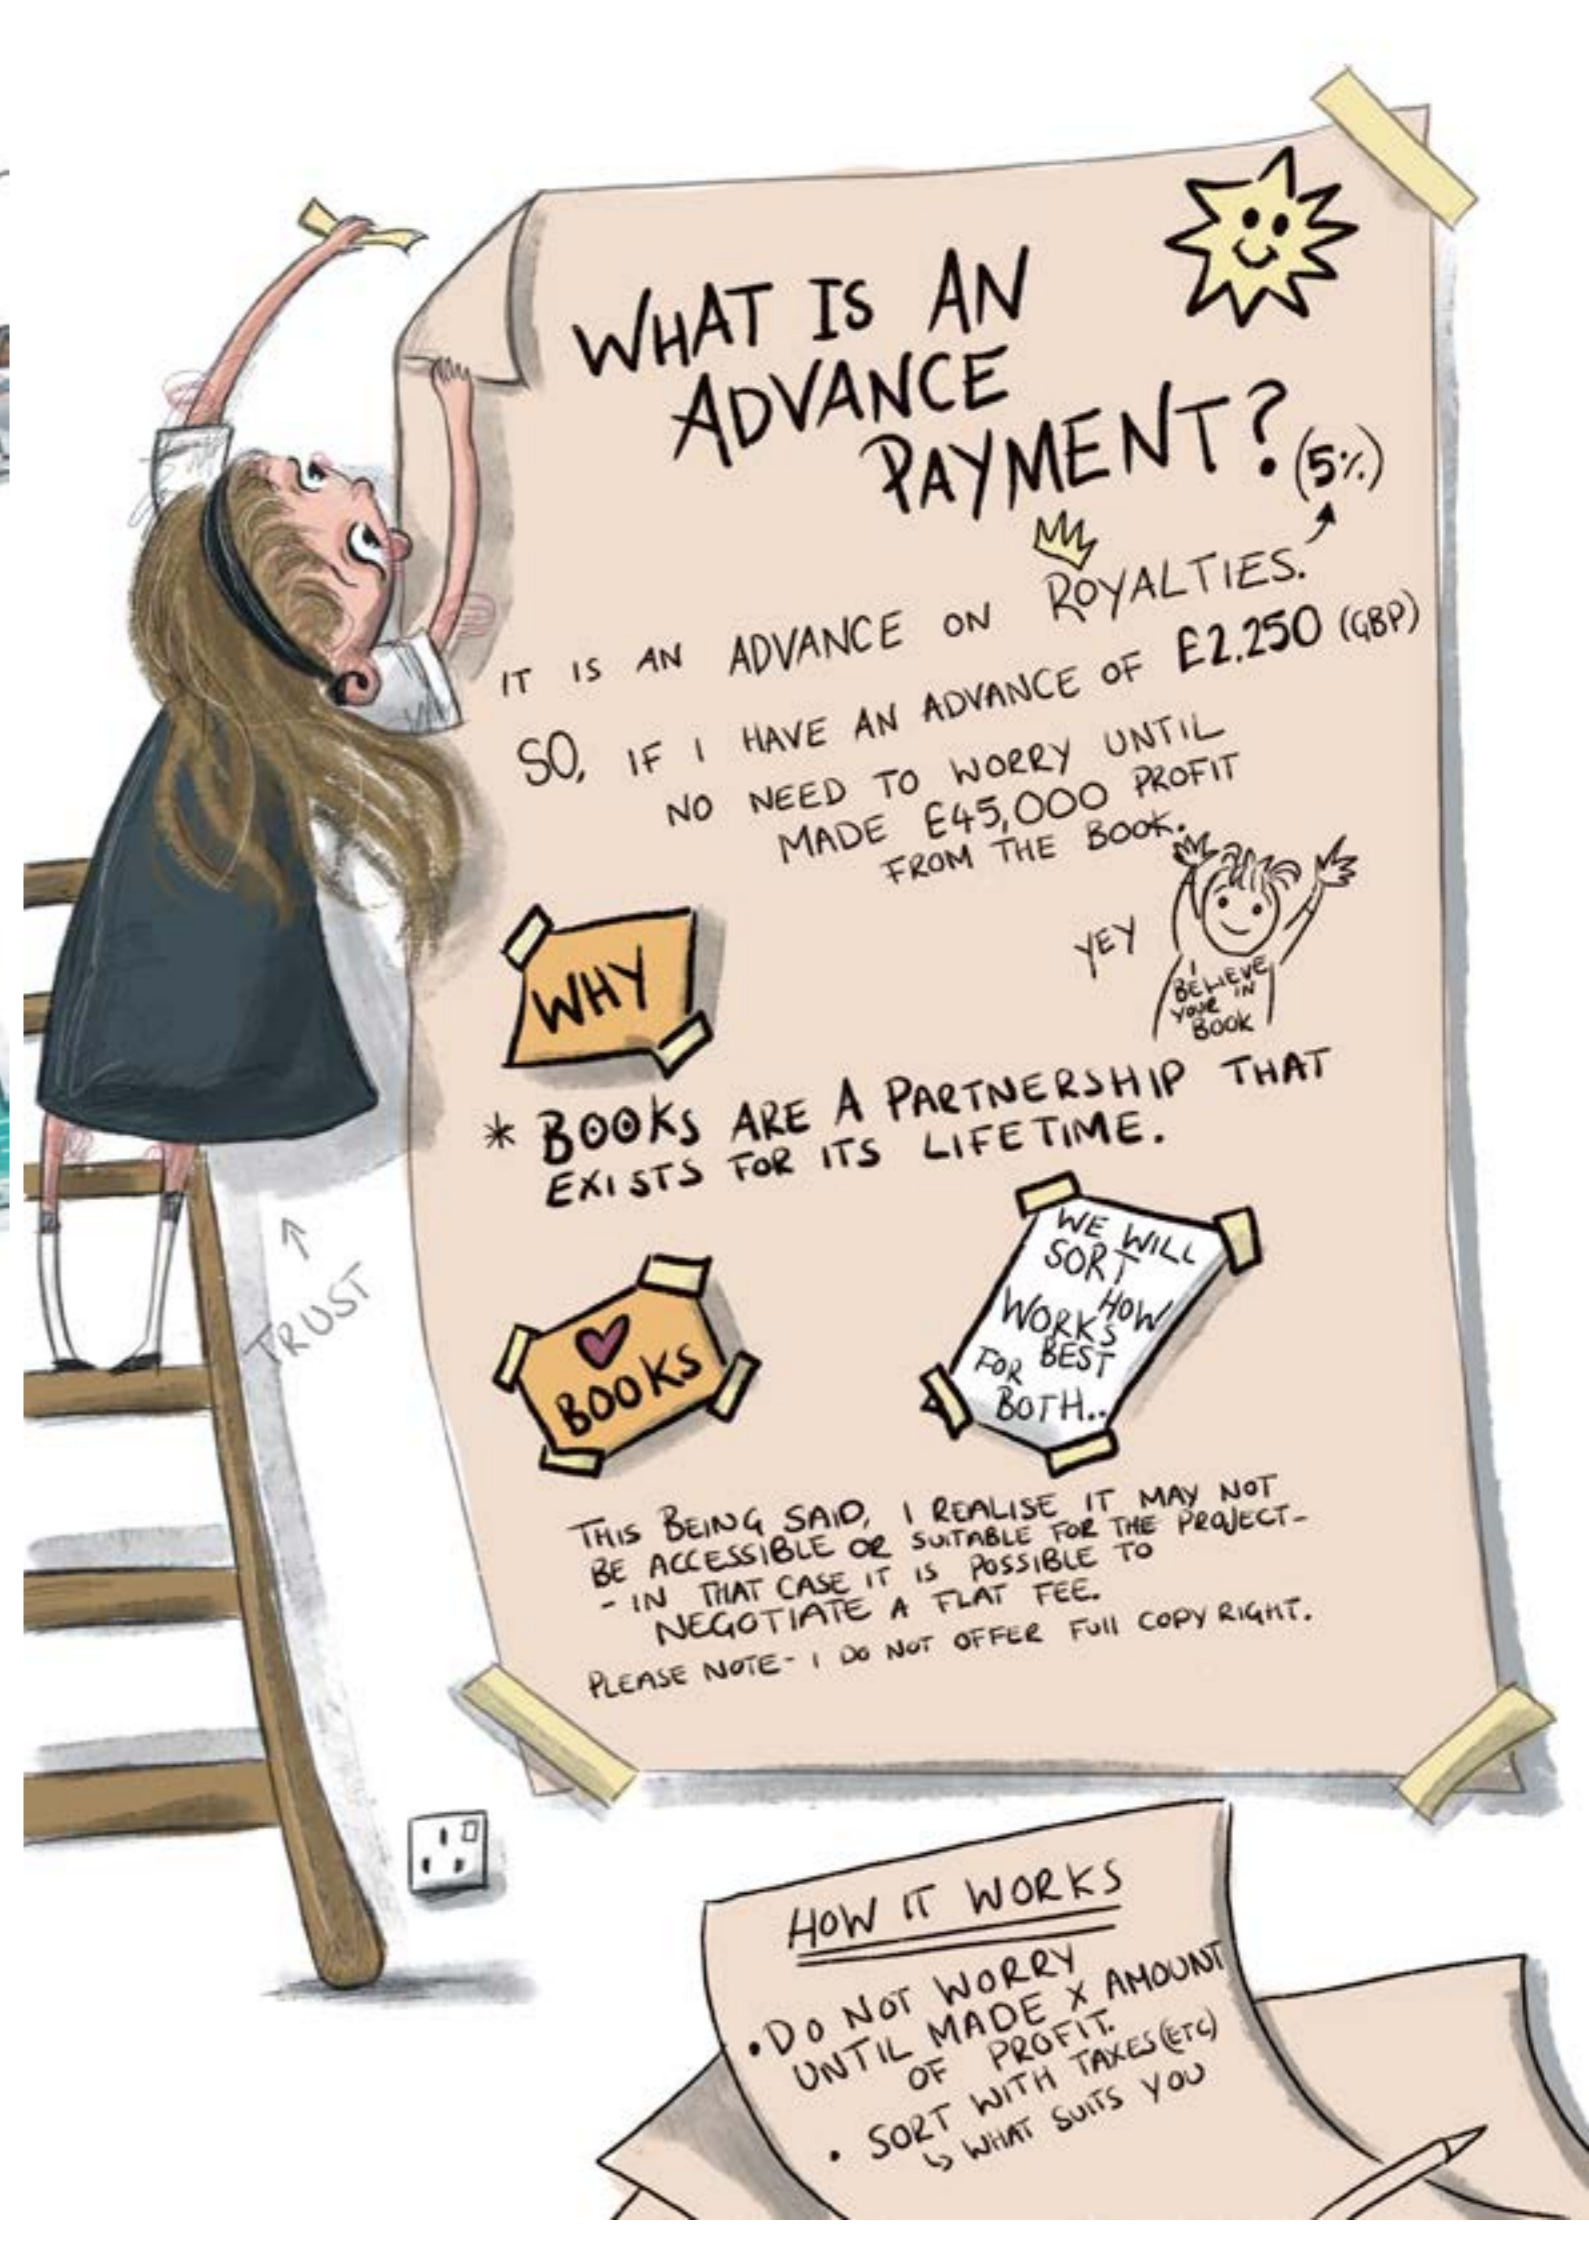 WHAT IS AN
ADVANCE
PAYMENT? (5%)
IT IS AN ADVANCE ON ROYALTIES.
SO, IF I HAVE AN ADVANCE OF £2.250 (GBP)
NO NEED TO WORRY UNTIL
MADE £45,000 PROFIT
FROM THE BOOK.
YEY
I
BELIEVE
YOUR IN
BOOK
WHY
* BOOKS ARE A PARTNERSHIP THAT
EXISTS FOR ITS LIFETIME.
TRUST
BOOKS
WE WILL
SORT
HOW
WORKS
FOR BEST
BOTH..
THIS BEING SAID, I REALISE IT MAY NOT
BE ACCESSIBLE OR SUITABLE FOR THE PROJECT-
- IN THAT CASE IT IS POSSIBLE TO
NEGOTIATE A FLAT FEE.
PLEASE NOTE- I DO NOT OFFER FUll COPY RIGHT.
HOW IT WORKS
• DO NOT WORRY
UNTIL MADE X AMOUNT
OF PROFIT.
• SORT WITH TAXES (ETC)
↳ WHAT SUITS YOU